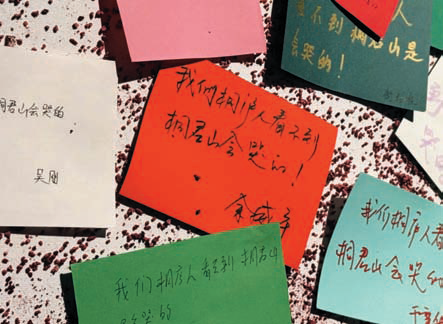 人
看不到桐君山是
会哭的!
桐君山会哭的
吴刚
我们桐庐人看不到
桐君山会哭的!
我们桐庐人看
桐君山会哭的
我们桐庐人看不到桐君山
会哭的